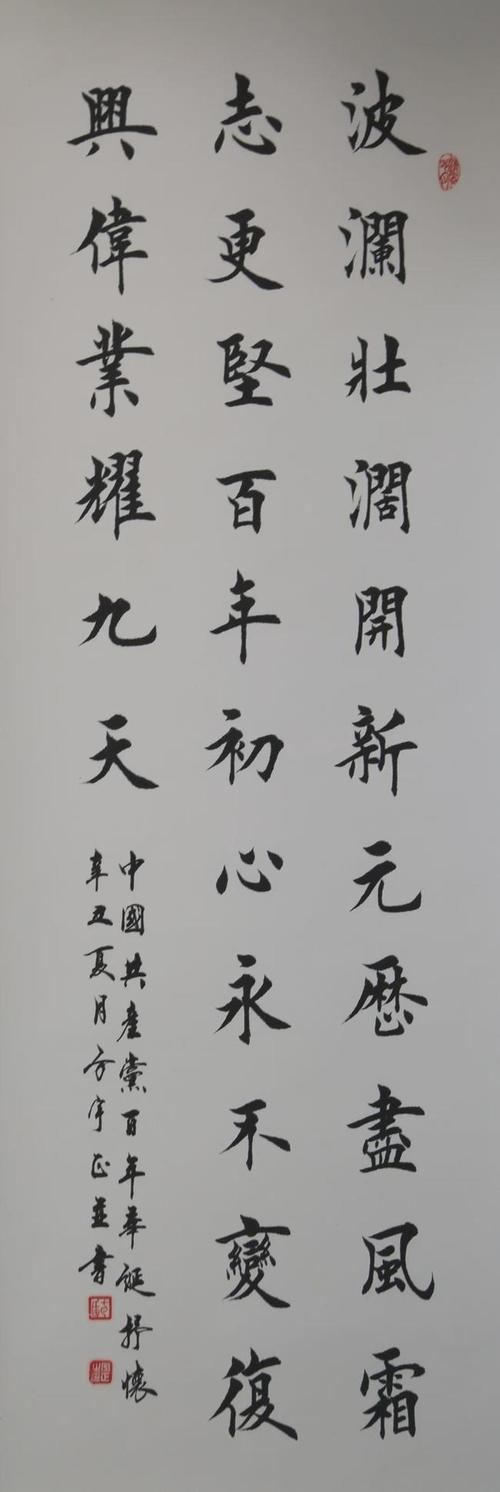 波瀾壯濶開新元歷盡風霜
志更堅百年初心永不變復
興偉業耀九天
中國共產黨百年華誕抒懷
辛丑夏月方宇正並書